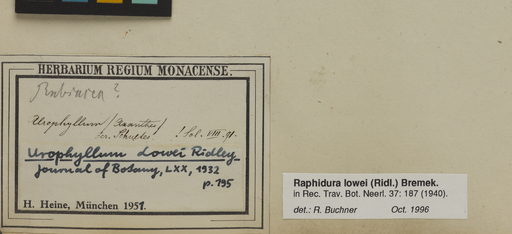 HERBARIUM REGIUM MONACENSE.
Rubiacea?
Urophyllum (Axanthes)
! Sol. VIII. 91.
Urophyllum Lowei Ridley
Journal of Botany, LXX, 1932
p. 195
H. Heine, München 1951.
Raphidura lowei (Ridl.) Bremek.
in Rec. Trav. Bot. Neerl. 37: 187 (1940).
det.: R. Buchner Oct. 1996